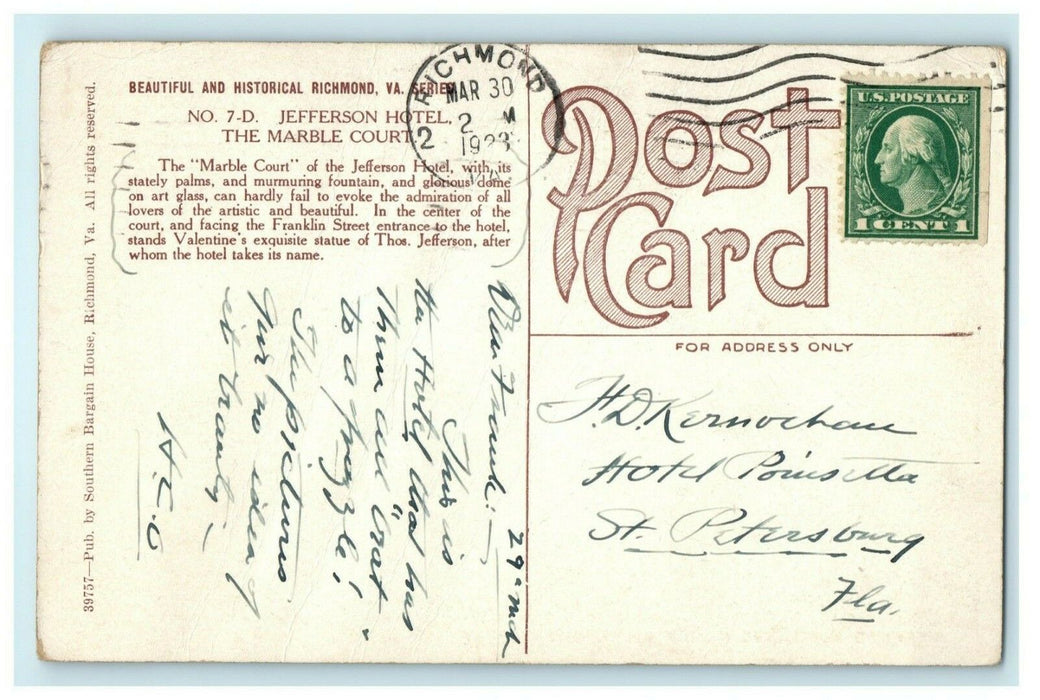 BEAUTIFUL AND HISTORICAL RICHMOND, VA. SERIES
NO. 7-D. JEFFERSON HOTEL,
THE MARBLE COURT
The "Marble Court" of the Jefferson Hotel, with its
stately palms, and murmuring fountain, and glorious dome
on art glass, can hardly fail to evoke the admiration of all
lovers of the artistic and beautiful. In the center of the
court, and facing the Franklin Street entrance to the hotel,
stands Valentine's exquisite statue of Thos. Jefferson, after
whom the hotel takes its name.
39757—Pub. by Southern Bargain House, Richmond, Va. All rights reserved.
RICHMOND
MAR 30
2 M
1923
2
VA
Post
Card
U.S. POSTAGE
1 CENT 1
FOR ADDRESS ONLY
H. D. Kernochan
Hotel Poinsetta
St. Petersburg
Fla.
29" Mch
Dear Friend:—
This is
the Hotel that has
them all "beat"
to a frazzle!
The pictures
give no idea of
its beauty—
H. C